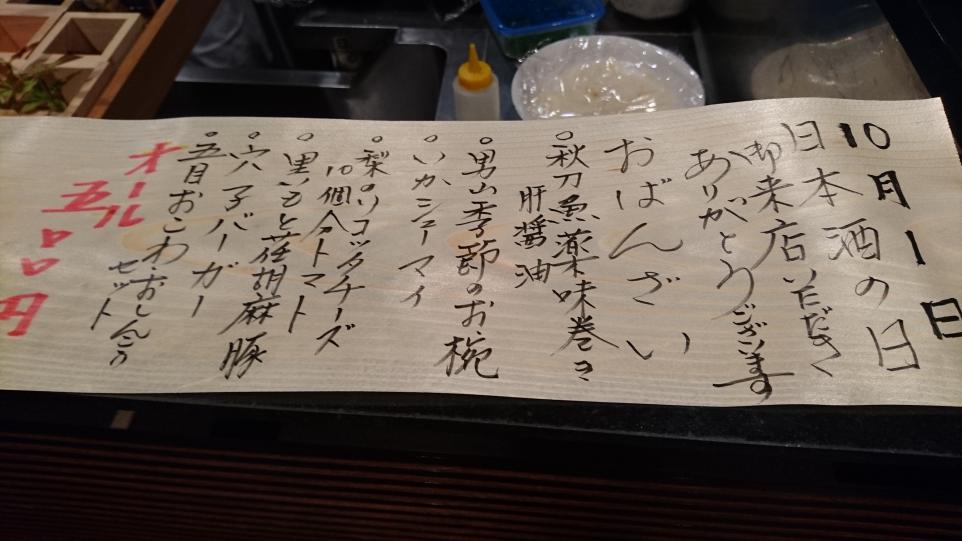 10月1日
日本酒の日
御来店いただき
ありがとうございます
おばんざい
○秋刀魚薬味巻き
肝醤油
○男山季節のお椀
○いかシューマイ
○梨のリコッタチーズ
10個入トマト
○里いもと荏胡麻豚
○穴子バーガー
○五目おこわ・おしんこう
セット
オール
五〇〇円